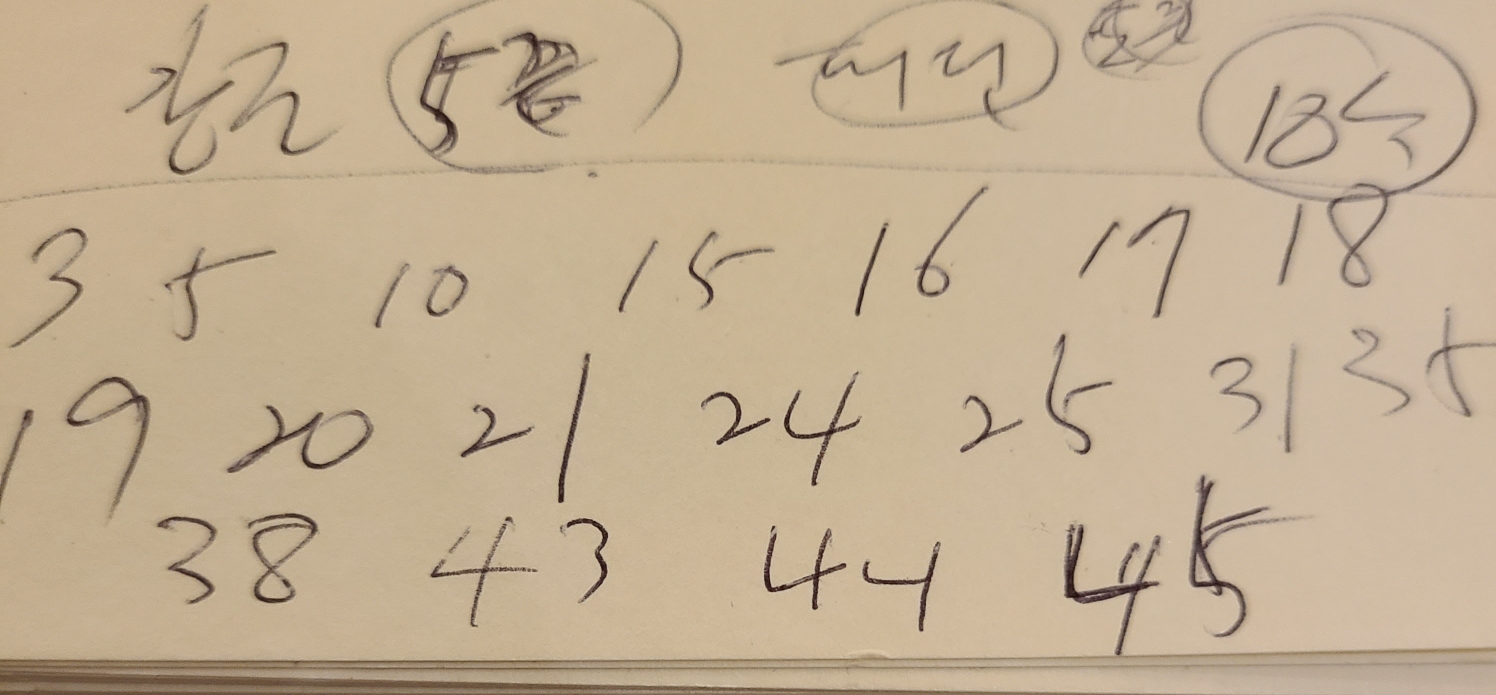 황금 5끝 18수
3 5 10 15 16 17 18
19 20 21 24 25 31 35
38 43 44 45